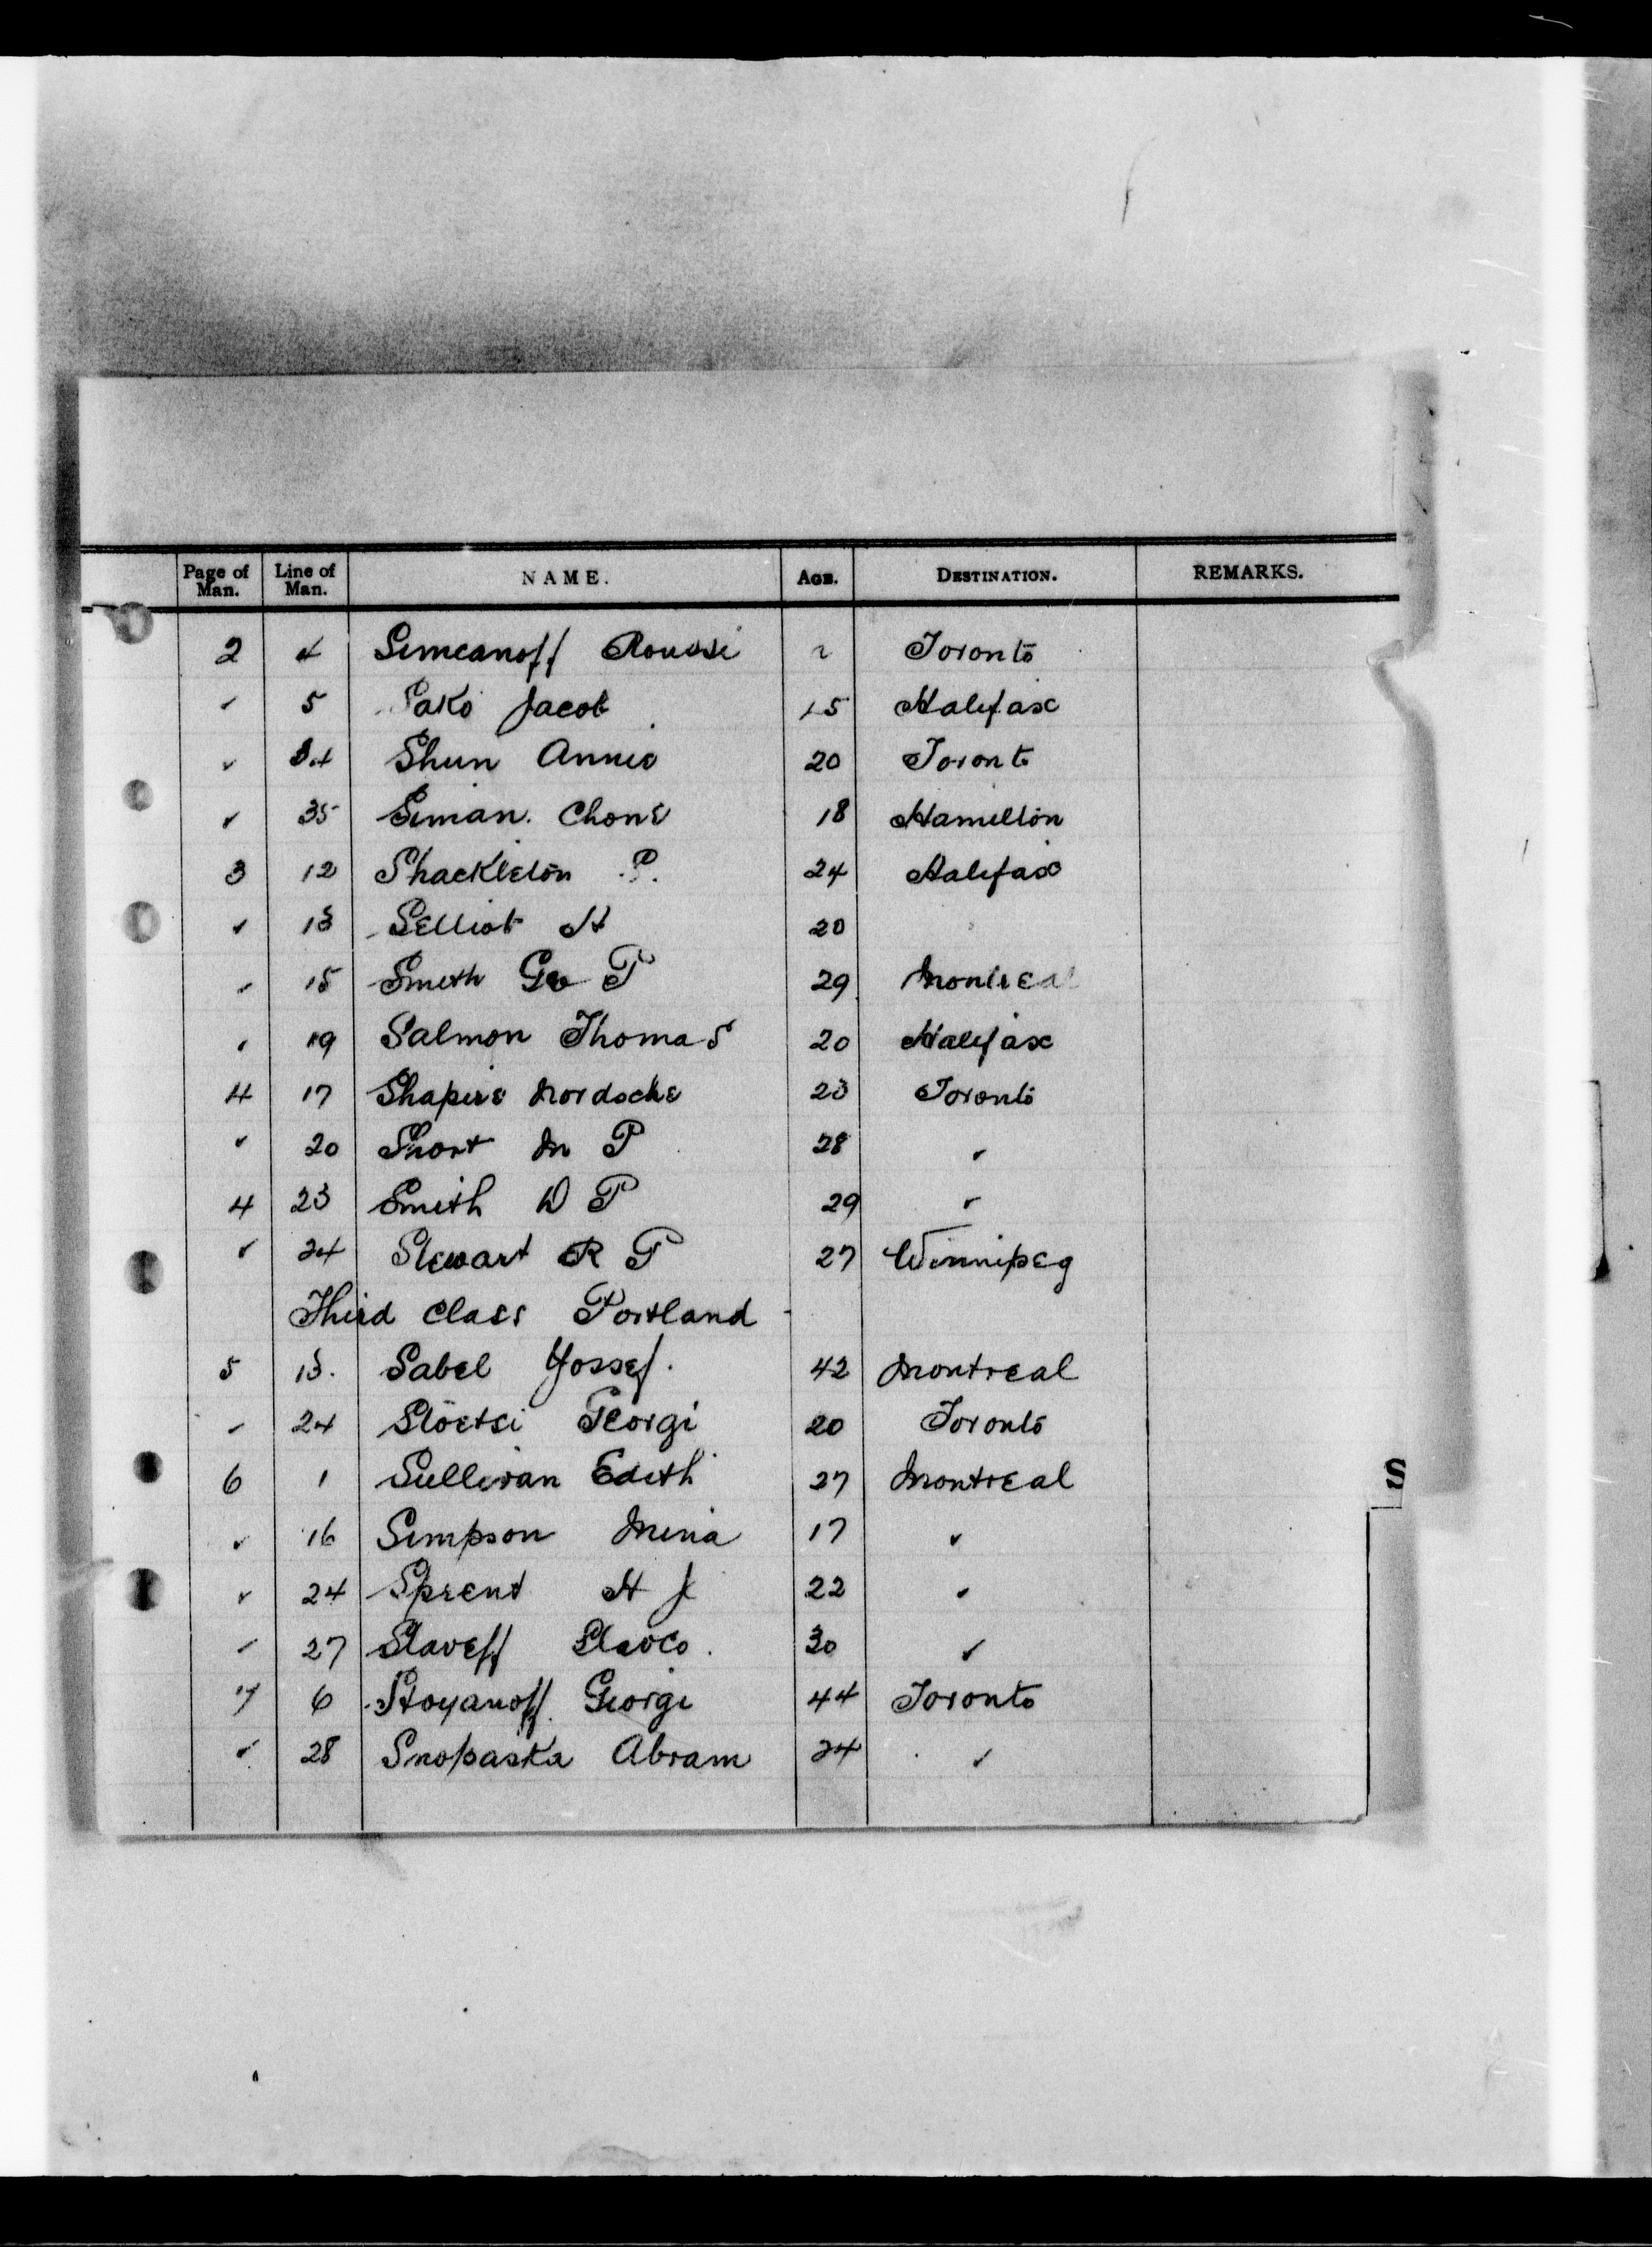 Page of Man. Line of Man. NAME. AGE. DESTINATION. REMARKS.
2 4 Simeanoff Roussi Toronto
✓ 5 Sako Jacob 15 Halifax
✓ 34 Shun Annie 20 Toronto
✓ 35 Siman. Chone 18 Hamilton
3 12 Shackleton P. 24 Halifax
✓ 13 Selliot H 20
✓ 15 Smith Geo P 29 Montreal
✓ 19 Salmon Thomas 20 Halifax
4 17 Shapire Mordsche 23 Toronto
✓ 20 Short M P 28 ✓
4 23 Smith D P 29 ✓
✓ 24 Stewart R P 27 Winnipeg
Third Class Portland
5 13. Sabel Yossef. 42 Montreal
✓ 24 Stoetsi Georgi 20 Toronto
6 1 Sullivan Edith 27 Montreal
✓ 16 Simpson Mina 17 ✓
✓ 24 Sprent H J 22 ✓
✓ 27 Slaveff Slavco. 30 ✓
7 6 Stoyanoff Georgi 44 Toronto
✓ 28 Snopaska Abram 24 ✓
S